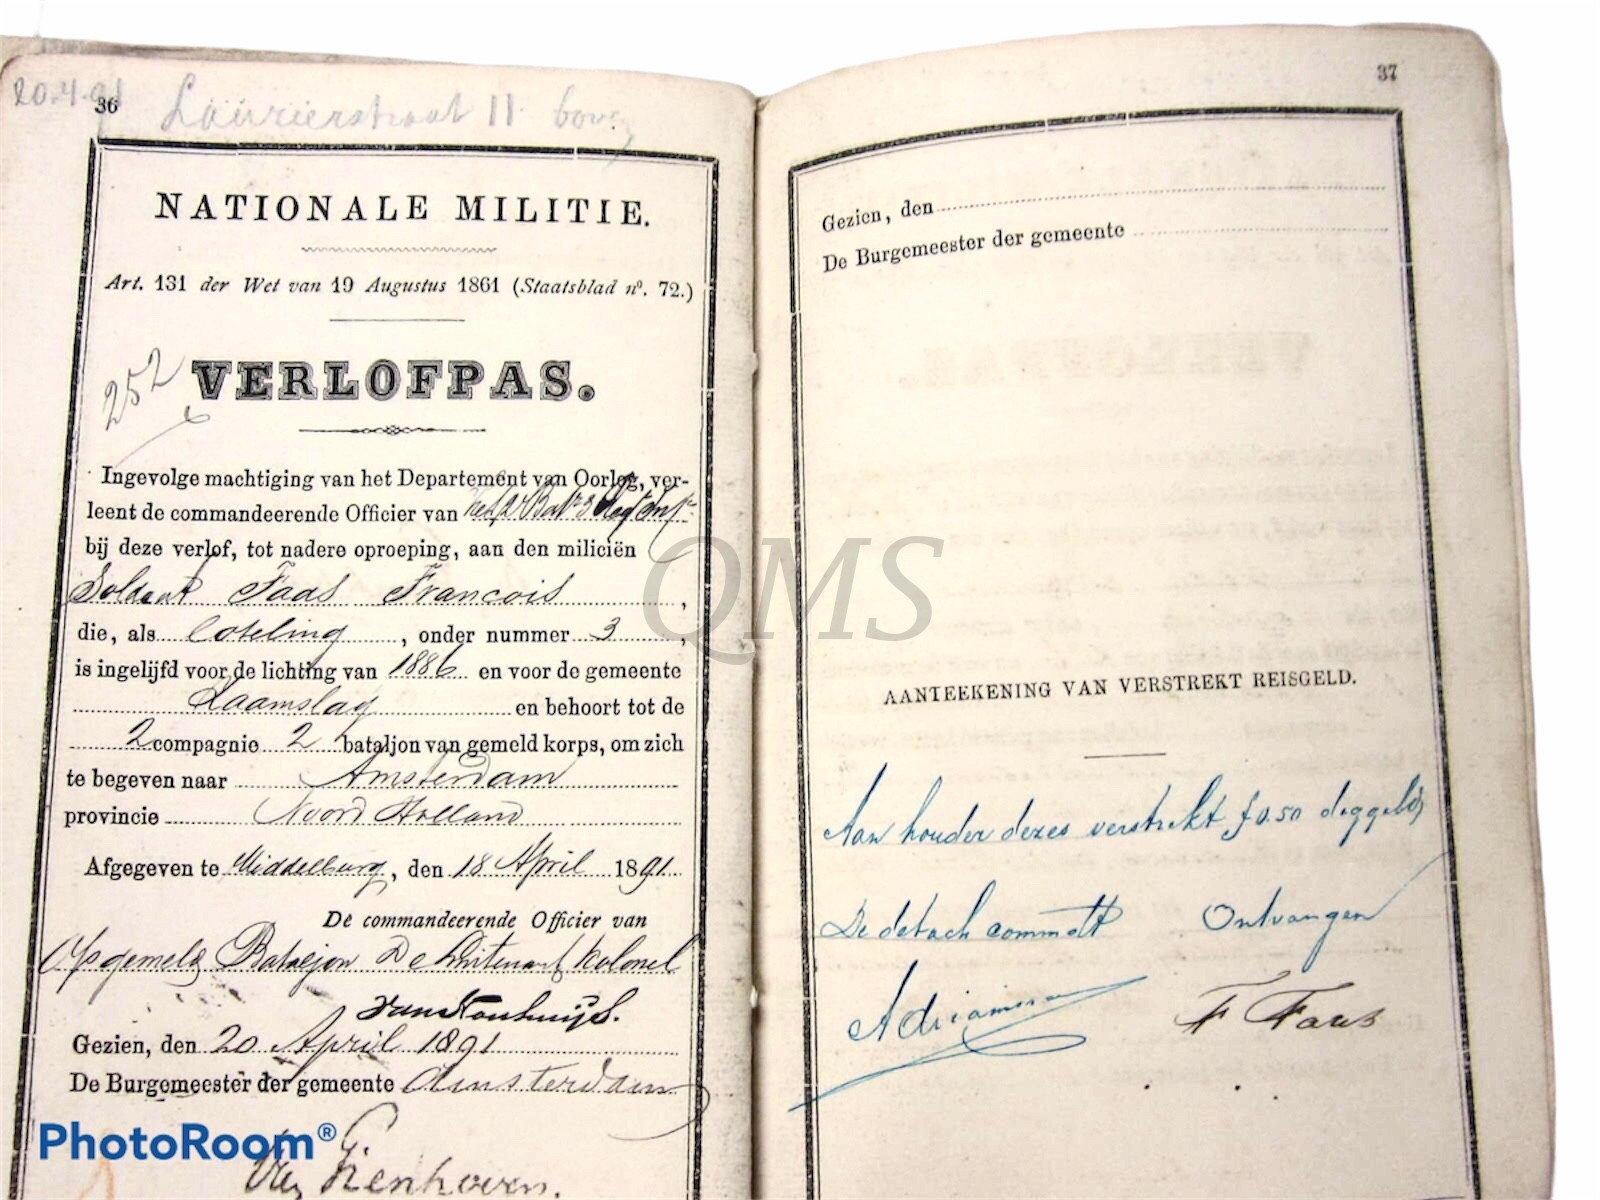 20.4.91
36
Laurierstraat 11 boven
NATIONALE MILITIE.
Art. 131 der Wet van 19 Augustus 1861 (Staatsblad nº. 72.)
252
VERLOFPAS.
Ingevolge machtiging van het Departement van Oorlog, ver-
leent de commandeerende Officier van het 2e Batn 3 Regt Infie
bij deze verlof, tot nadere oproeping, aan den miliciën
Soldaat Faas Francois ,
die, als loteling , onder nummer 3 ,
is ingelijfd voor de lichting van 1886 en voor de gemeente
Zaamslag en behoort tot de
2 compagnie 2 bataljon van gemeld korps, om zich
te begeven naar Amsterdam
provincie Noord Holland
Afgegeven te Middelburg, den 18 April 1891.
De commandeerende Officier van
Opgemeld Bataljon De Luitenant Kolonel
Gezien, den 20 April 1891
De Burgemeester der gemeente Amsterdam
Van Tienhoven.
37
Gezien, den
De Burgemeester der gemeente
AANTEEKENING VAN VERSTREKT REISGELD.
Aan houder dezes verstrekt f 0.50 daggeld
De detach commdt Ontvangen
F Faas
QMS
PhotoRoom®